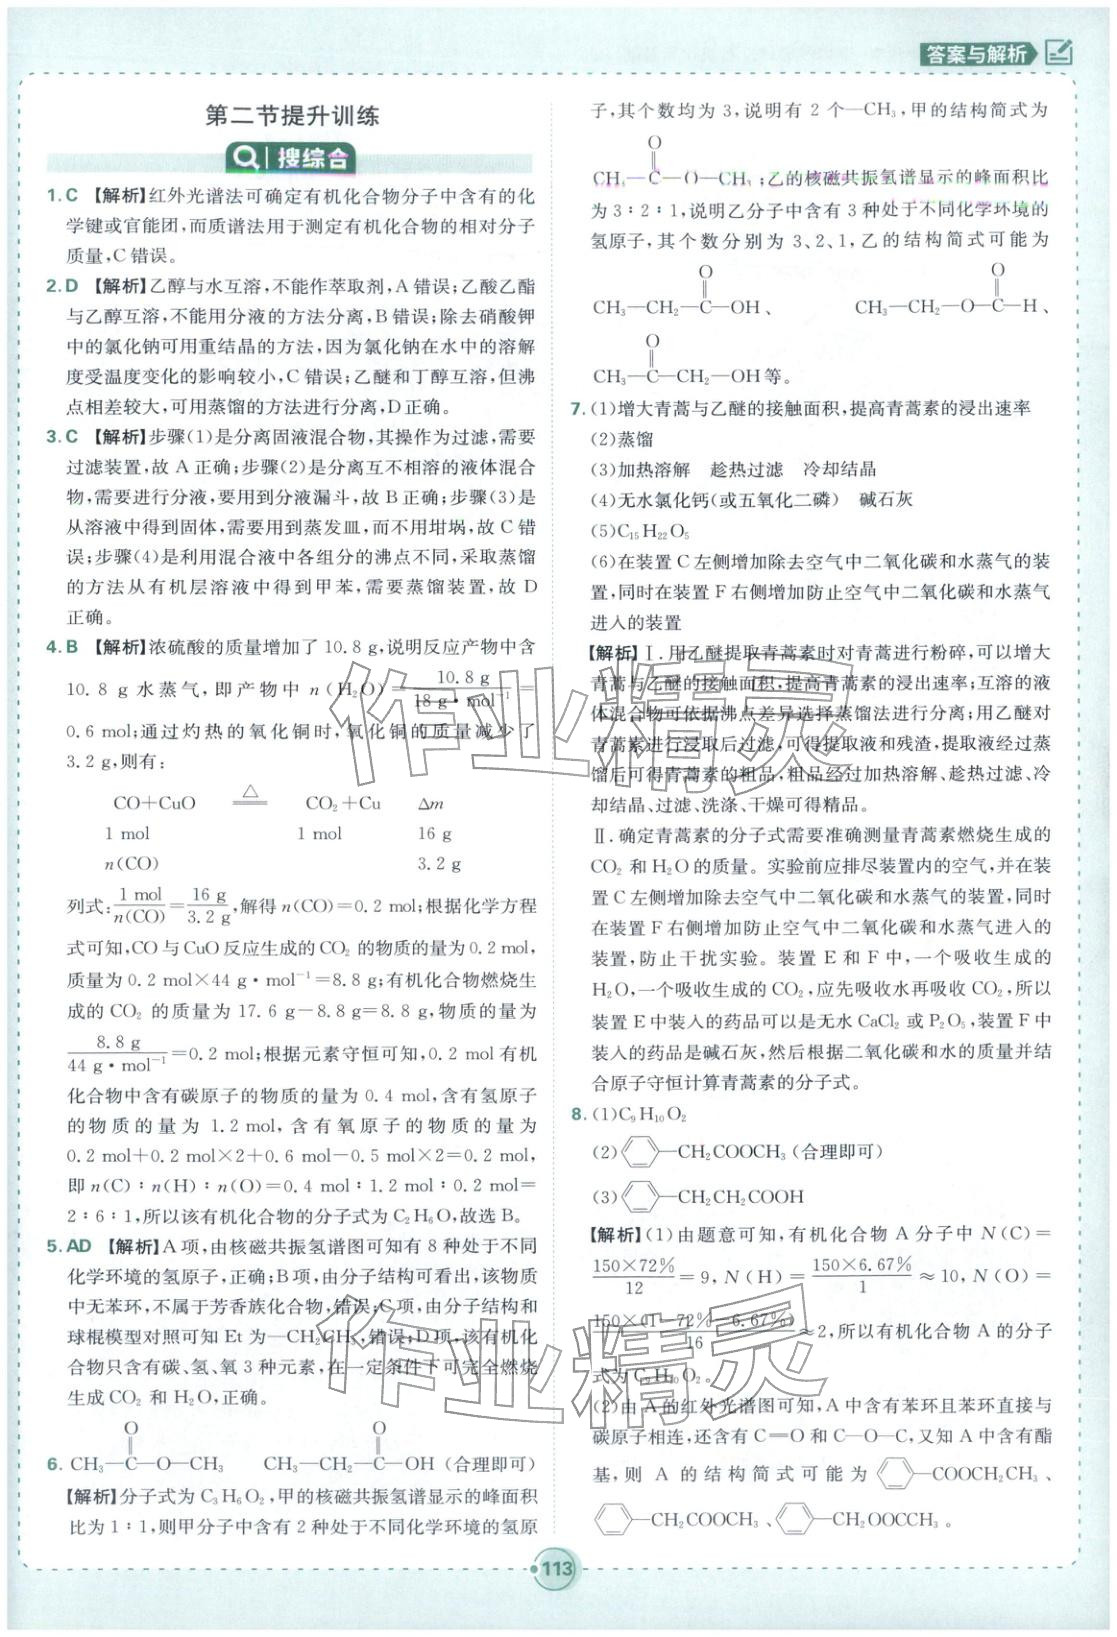 答案与解析
第二节提升训练
搜综合
1. C 【解析】红外光谱法可确定有机化合物分子中含有的化
学键或官能团,而质谱法用于测定有机化合物的相对分子
质量,C错误。
2. D 【解析】乙醇与水互溶,不能作萃取剂,A错误;乙酸乙酯
与乙醇互溶,不能用分液的方法分离,B错误;除去硝酸钾
中的氯化钠可用重结晶的方法,因为氯化钠在水中的溶解
度受温度变化的影响较小,C错误;乙醚和丁醇互溶,但沸
点相差较大,可用蒸馏的方法进行分离,D正确。
3. C 【解析】步骤(1)是分离固液混合物,其操作为过滤,需要
过滤装置,故A正确;步骤(2)是分离互不相溶的液体混合
物,需要进行分液,要用到分液漏斗,故B正确;步骤(3)是
从溶液中得到固体,需要用到蒸发皿,而不用坩埚,故C错
误;步骤(4)是利用混合液中各组分的沸点不同,采取蒸馏
的方法从有机层溶液中得到甲苯,需要蒸馏装置,故D
正确。
4. B 【解析】浓硫酸的质量增加了10.8 g,说明反应产物中含
10.8 g水蒸气,即产物中n(H₂O)=10.8 g/18 g·mol⁻¹=
0.6 mol;通过灼热的氧化铜时,氧化铜的质量减少了
3.2 g,则有:
CO+CuO △ CO₂+Cu Δm
1 mol 1 mol 16 g
n(CO) 3.2 g
列式:1 mol/n(CO)=16 g/3.2 g,解得n(CO)=0.2 mol;根据化学方程
式可知,CO与CuO反应生成的CO₂的物质的量为0.2 mol,
质量为0.2 mol×44 g·mol⁻¹=8.8 g;有机化合物燃烧生
成的CO₂的质量为17.6 g-8.8 g=8.8 g,物质的量为
8.8 g/44 g·mol⁻¹=0.2 mol;根据元素守恒可知,0.2 mol有机
化合物中含有碳原子的物质的量为0.4 mol,含有氢原子
的物质的量为1.2 mol,含有氧原子的物质的量为
0.2 mol+0.2 mol×2+0.6 mol-0.5 mol×2=0.2 mol,
即n(C)∶n(H)∶n(O)=0.4 mol∶1.2 mol∶0.2 mol=
2∶6∶1,所以该有机化合物的分子式为C₂H₆O,故选B。
5. AD 【解析】A项,由核磁共振氢谱图可知有8种处于不同
化学环境的氢原子,正确;B项,由分子结构可看出,该物质
中无苯环,不属于芳香族化合物,错误;C项,由分子结构和
球棍模型对照可知Et为—CH₂CH₃,错误;D项,该有机化
合物只含有碳、氢、氧3种元素,在一定条件下可完全燃烧
生成CO₂和H₂O,正确。
O O
6. CH₃—C—O—CH₃ CH₃—CH₂—C—OH(合理即可)
【解析】分子式为C₃H₆O₂,甲的核磁共振氢谱显示的峰面积
比为1∶1,则甲分子中含有2种处于不同化学环境的氢原
子,其个数均为3,说明有2个—CH₃,甲的结构简式为
O
CH₃—C—O—CH₃;乙的核磁共振氢谱显示的峰面积比
为3∶2∶1,说明乙分子中含有3种处于不同化学环境的
氢原子,其个数分别为3、2、1,乙的结构简式可能为
O O
CH₃—CH₂—C—OH、 CH₃—CH₂—O—C—H、
O
CH₃—C—CH₂—OH等。
7. (1)增大青蒿与乙醚的接触面积,提高青蒿素的浸出速率
(2)蒸馏
(3)加热溶解 趁热过滤 冷却结晶
(4)无水氯化钙(或五氧化二磷) 碱石灰
(5)C₁₅H₂₂O₅
(6)在装置C左侧增加除去空气中二氧化碳和水蒸气的装
置,同时在装置F右侧增加防止空气中二氧化碳和水蒸气
进入的装置
【解析】Ⅰ.用乙醚提取青蒿素时对青蒿进行粉碎,可以增大
青蒿与乙醚的接触面积,提高青蒿素的浸出速率;互溶的液
体混合物可依据沸点差异选择蒸馏法进行分离;用乙醚对
青蒿素进行浸取后过滤,可得提取液和残渣,提取液经过蒸
馏后可得青蒿素的粗品,粗品经过加热溶解、趁热过滤、冷
却结晶、过滤、洗涤、干燥可得精品。
Ⅱ.确定青蒿素的分子式需要准确测量青蒿素燃烧生成的
CO₂和H₂O的质量。实验前应排尽装置内的空气,并在装
置C左侧增加除去空气中二氧化碳和水蒸气的装置,同时
在装置F右侧增加防止空气中二氧化碳和水蒸气进入的
装置,防止干扰实验。装置E和F中,一个吸收生成的
H₂O,一个吸收生成的CO₂,应先吸收水再吸收CO₂,所以
装置E中装入的药品可以是无水CaCl₂或P₂O₅,装置F中
装入的药品是碱石灰,然后根据二氧化碳和水的质量并结
合原子守恒计算青蒿素的分子式。
8. (1)C₉H₁₀O₂
(2) —CH₂COOCH₃(合理即可)
(3) —CH₂CH₂COOH
【解析】(1)由题意可知,有机化合物A分子中N(C)=
150×72%/12=9,N(H)=150×6.67%/1≈10,N(O)=
150×(1-72%-6.67%)/16≈2,所以有机化合物A的分子
式为C₉H₁₀O₂。
(2)由A的红外光谱图可知,A中含有苯环且苯环直接与
碳原子相连,还含有C=O和C—O—C,又知A中含有酯
基,则A的结构简式可能为 —COOCH₂CH₃、
—CH₂COOCH₃、 —CH₂OOCCH₃。
113
作业精灵
作业精灵